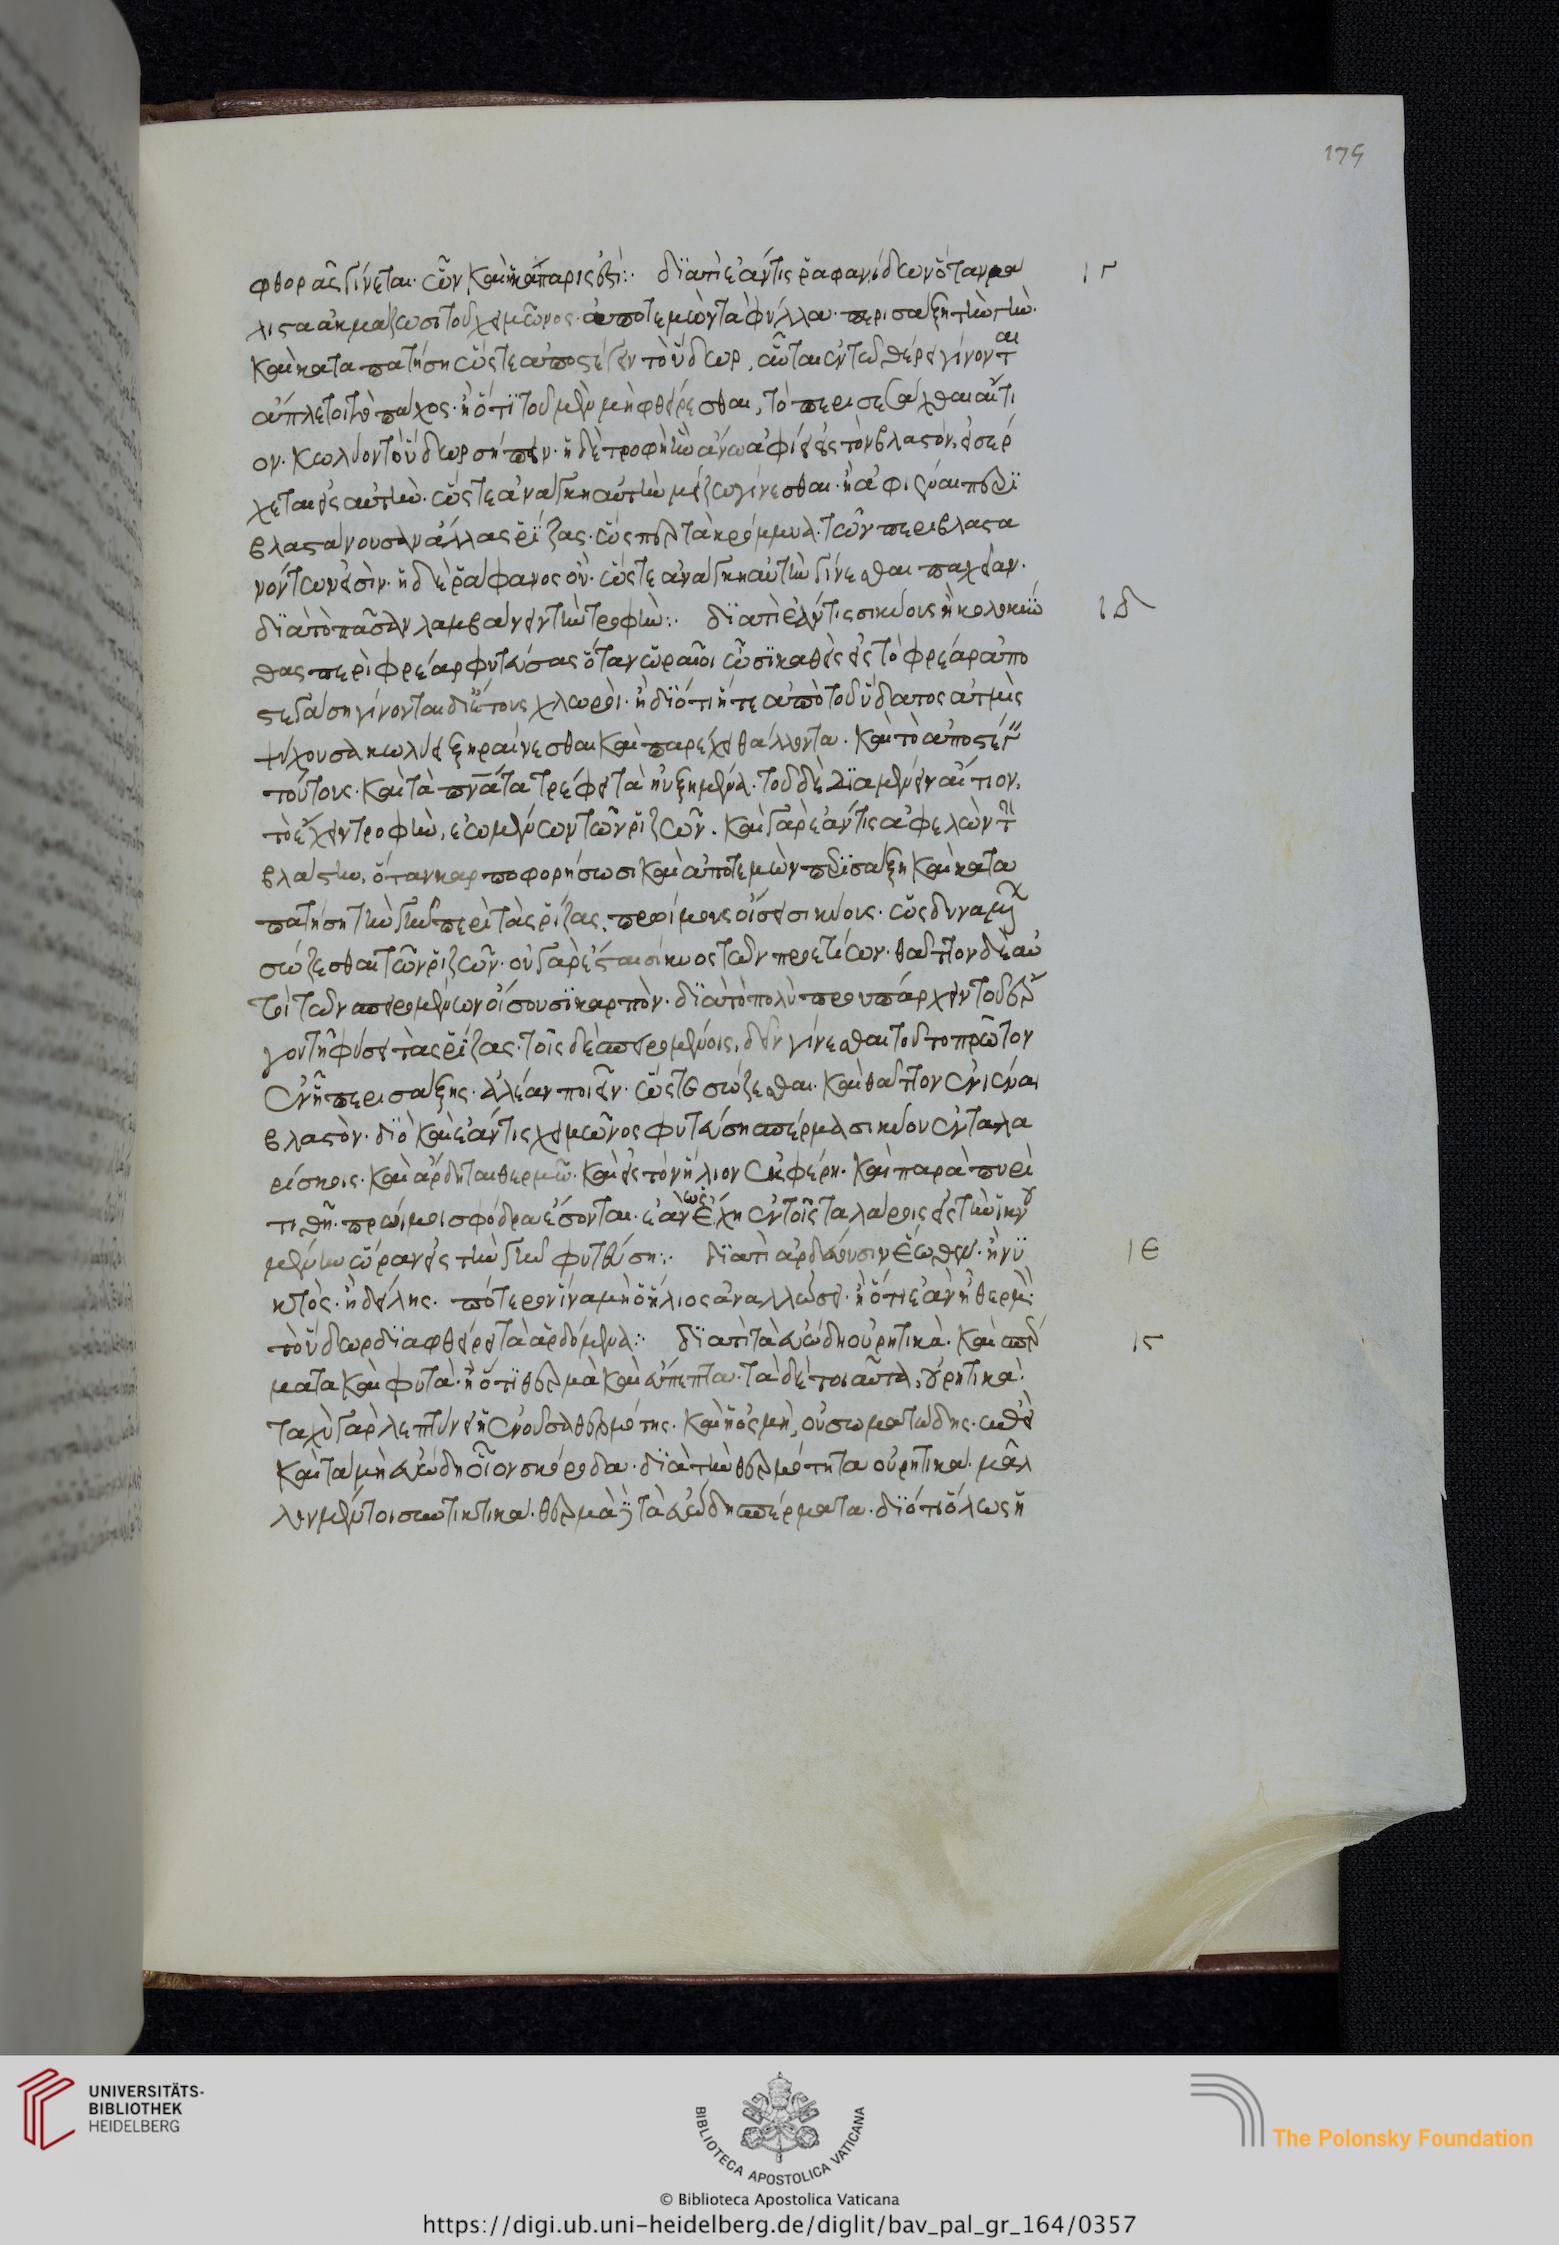 175
φθορᾶς γίνεται. ὧν καὶ ἡ κάππαρις ἐστί:· διατί ἐάν τις ῥαφανίδων ὅταν μα
λιστα ἀκμάζωσι τοῦ χειμῶνος. ἀποτεμὼν τὰ φύλλα. περισάξη τὴν γῆν.
καὶ καταπατήση ὥστε ἀποστέγειν τὸ ὕδωρ, αὗται ἐν τῶ θέρει γίνονται
ἄπλετοι τὸ πάχος. ἢ ὅτι τοῦ μὲν μὴ φθείρεσθαι, τὸ περισεσάχθαι αἴτι
ον. κωλύον τὸ ὕδωρ σήπειν. ἡ δὲ τροφὴ ἣν ἄνω ἀφίει εἰς τὸν βλαστόν, εἰσέρ
χεται εἰς αὐτήν. ὥστε ἀνάγκη αὐτὴν μείζω γίνεσθαι. ἢ ἀφιέναι περι
βλαστάνουσαν ἄλλας ῥίζας. ὥσπερ τὰ κρόμμυα. τῶν περιβλαστα
νόντων ἐστὶν. ἡ δὲ ῥάφανος ὄν. ὥστε ἀνάγκη αὐτὴν γίνεσθαι παχεῖαν.
διὰ τὸ πᾶσαν λαμβάνειν τὴν τροφήν:· διατί ἐάν τις σικύους ἢ κολοκύν
θας περὶ φρέαρ φυτεύσας ὅταν ὡραῖοι ὦσι καθεὶς εἰς τὸ φρέαρ ἀπο
στεγάση γίνονται δι' ἔτους χλωροί. ἢ διότι ἥ τε ἀπὸ τοῦ ὕδατος ἀτμὶς
ψύχουσα κωλύει ξηραίνεσθαι καὶ παρέχει θάλλοντα. καὶ τὸ ἀποστέγειν
τούτους. καὶ τὰ πνάτα τρέφει τὰ ηὐξημένα. τοῦ δὲ διαμένειν αἴτιον,
τὸ ἔχειν τροφήν, ἐωμένων τῶν ῥιζῶν. καὶ γὰρ ἐάν τις ἀφελὼν τὴν
βλάστην, ὅταν καρποφορήσωσι καὶ ἀποτεμὼν περισάξη καὶ κατα
πατήση τὴν γῆν περὶ τὰς ῥίζας, πρωίμους οἴσει σικύους. ὡς δυναμένων
σώζεσθαι τῶν ῥιζῶν. οὐ γάρ ἐστι σίκυος τῶν προετείων. θᾶττον δὲ αὐ
τοὶ τῶν σπειρομένων οἴσουσι καρπὸν. διὰ τὸ πολὺ προϋπάρχειν τοῦ ἔρ
γου τῆ φύσει τὰς ῥίζας. τοῖς δὲ σπειρομένοις, δεῖν γίνεσθαι τοῦτο πρῶτον
ἔτι ἡ περίσαξις. ἀλέαν ποιεῖν. ὥστε σώζεσθαι. καὶ θᾶττον ἐνιέναι
βλαστὸν. διὸ καὶ ἐάν τις χειμῶνος φυτεύση σπέρμα σικύου ἐν ταλα
ρίσκοις. καὶ ἄρδηται θερμῶ. καὶ εἰς τὸν ἥλιον ἐκφέρη. καὶ παρὰ πυρὶ
τιθῆ. πρώιμοι σφόδρα ἔσονται. ἐὰν ὡς ἔχη ἐν τοῖς ταλάροις εἰς τὴν ἱκνου
μένην ὥραν εἰς τὴν γῆν φυτεύση:· διατί ἀρδεύουσιν ἕωθεν. ἢ νυ
κτὸς. ἢ δείλης. πότερον ἵνα μὴ ὁ ἥλιος ἀναλλώσει. ἢ ὅτι ἐὰν ἦ θερμὸν
τὸ ὕδωρ διαφθείρει τὰ ἀρδόμενα:· διατί τὰ εὐώδη οὐρητικὰ. καὶ σπέρ
ματα καὶ φυτὰ. ἢ ὅτι θερμὰ καὶ εὔπεπτα. τὰ δὲ τοιαῦτα, οὐρητικά.
ταχὺ γὰρ λεπτύνει ἡ ἐνοῦσα θερμότης. καὶ ἡ ὀσμὴ, οὐ σωματώδης. ἐπεὶ
καὶ τὰ μὴ εὐώδη οἷον σκόροδα. διὰ τὴν θερμότητα οὐρητικά. μᾶλ
λον μέντοι συντηκτικά. θερμὰ δὲ τὰ εὐώδη σπέρματα. διότι ὅλως ἡ
ιγ
ιδ
ιε
ις
UNIVERSITÄTS-
BIBLIOTHEK
HEIDELBERG
BIBLIOTECA APOSTOLICA VATICANA
The Polonsky Foundation
© Biblioteca Apostolica Vaticana
https://digi.ub.uni-heidelberg.de/diglit/bav_pal_gr_164/0357